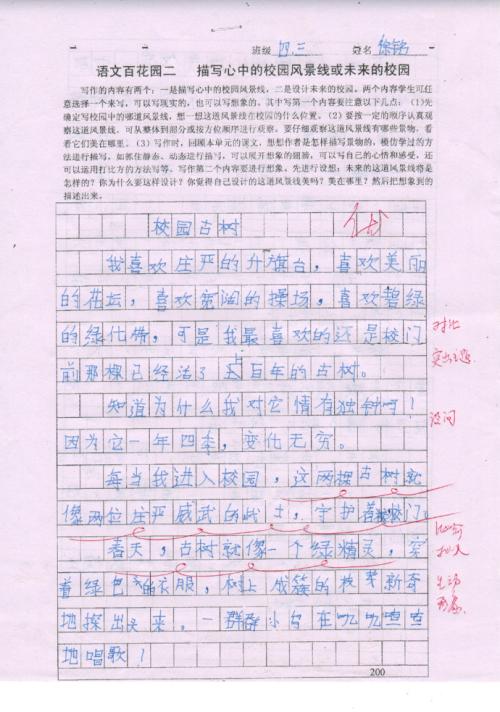 班级 四.三 姓名 徐铭
语文百花园二 描写心中的校园风景线或未来的校园
写作的内容有两个:一是描写心中的校园风景线,二是设计未来的校园。两个内容学生可任
意选择一个来写,可以写现实的,也可以写想象的。其中写第一个内容要注意以下几点:(1)先
确定写校园中的哪道风景线,想一想这道风景线在校园的什么位置。(2)要按一定的顺序认真观
察这道风景线,可从整体到部分或按方位顺序进行观察。要仔细观察这道风景线有哪些景物,看
看它们美在哪里。(3)写作时,回顾本单元的课文,想想作者是怎样描写景物的,模仿学过的方
法进行描写。如抓住静态、动态进行描写,可以展开想象的翅膀,可以写自己的心情和感受,还
可以运用打比方的方法写等。写作第二个内容要进行想象。先进行设想:未来的这道风景线将是
怎样的?你为什么要这样设计?你觉得自己设计的这道风景线美吗?美在哪里?然后把想象到的
描述出来。
校园古树
优
我喜欢庄严的升旗台,喜欢美丽
的花坛,喜欢宽阔的操场,喜欢碧绿
的绿化带,可是我最喜欢的还是校门
对比
前那棵已经活了上百年的古树。
突出主题
知道为什么我对它情有独钟吗!
设问
因为它一年四季,变化无穷。
每当我进入校园,这两棵古树就
像两位庄严威武的战士,守护着校门。
比喻
春天,古树就像一个绿精灵,穿
拟人
着绿色的衣服,树上成簇的枝芽新奇
生动
形象
地探出头来。一群群小鸟在叽叽喳喳
地唱歌!
200